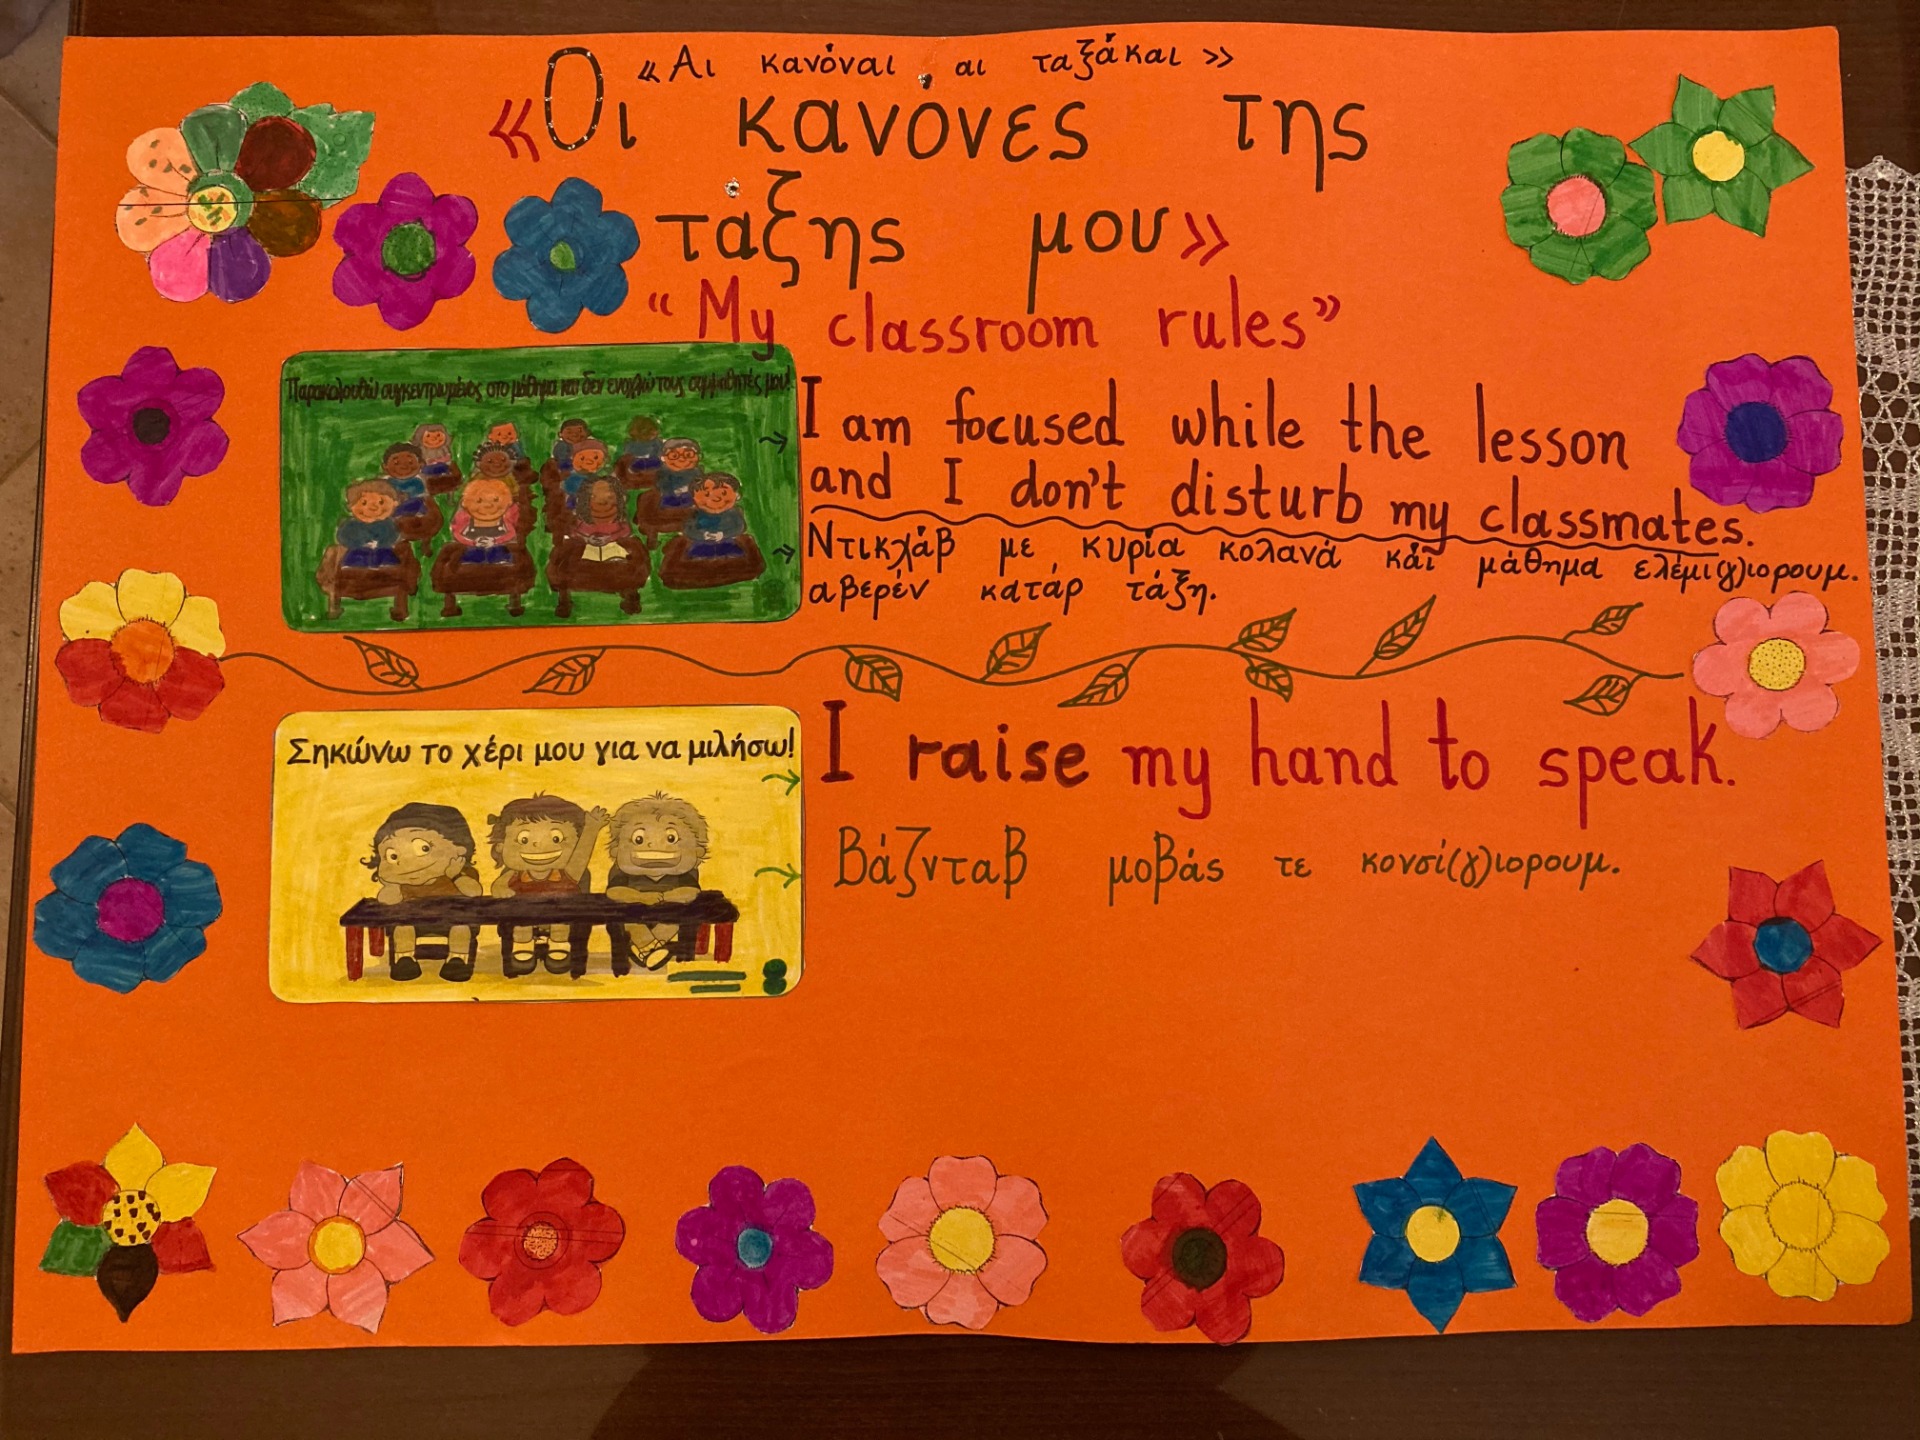 «Αι κανόναι αι ταξάκαι»
«Οι κανόνες της
τάξης μου»
“My classroom rules”
Παρακολουθώ συγκεντρωμένος στο μάθημα και δεν ενοχλώ τους συμμαθητές μου!
→ I am focused while the lesson
and I don't disturb my classmates.
→ Ντικχάβ με κυρία κολανά κάι μάθημα ελέμι(γ)ιορουμ.
αβερέν κατάρ τάξη.
Σηκώνω το χέρι μου για να μιλήσω!
→ I raise my hand to speak.
→ Βάζνταβ μοβάς τε κονσί(γ)ιορουμ.